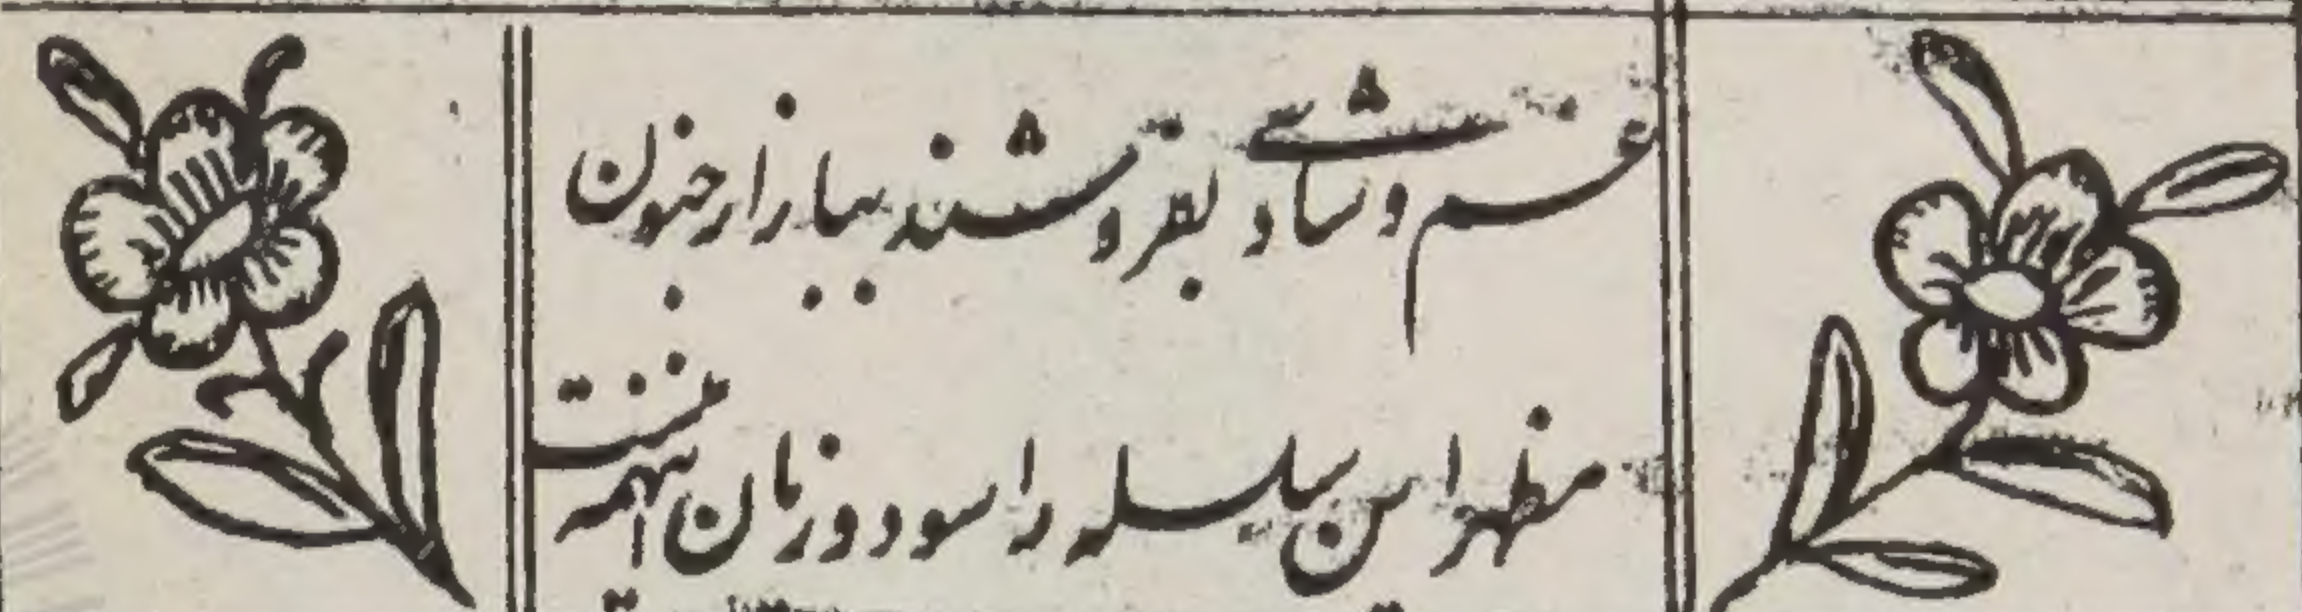 غم و شادی بفروشند ببازار جنون
مظهر این سلسله را سود و زیان هیمه است